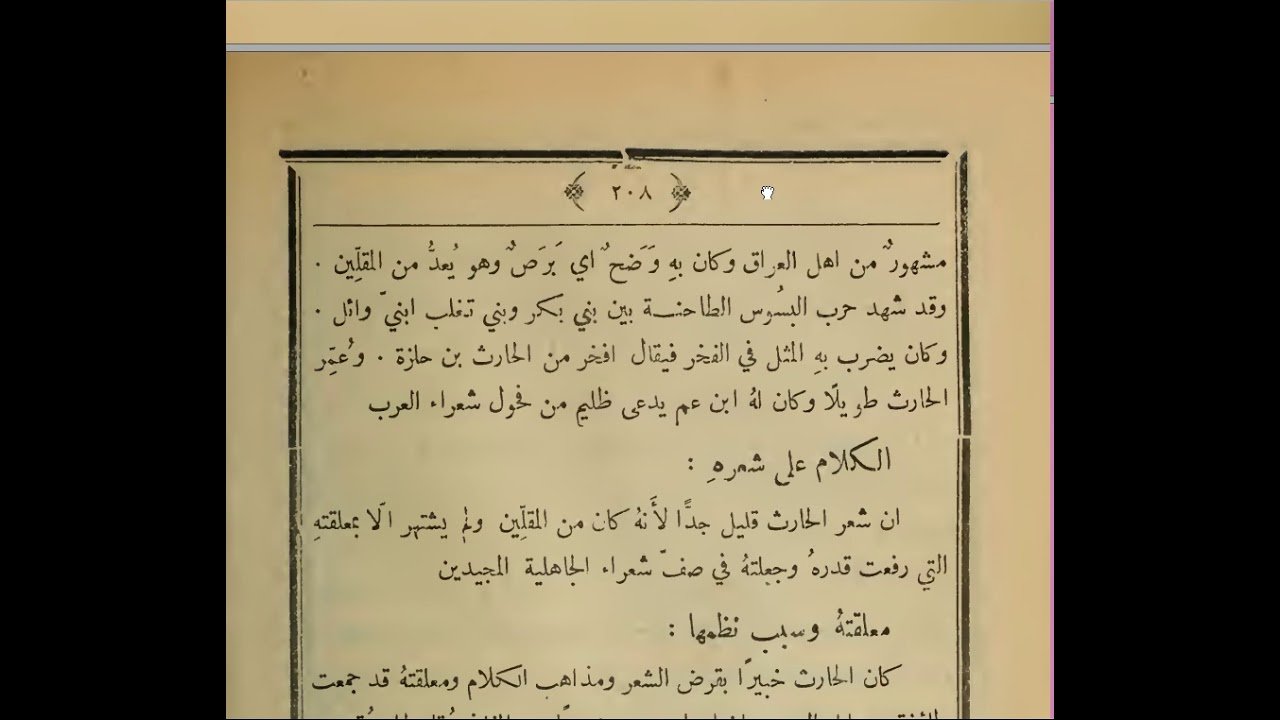 ٢٠٨
مشهورٌ من اهل العراق وكان بهِ وَضَحٌ اي بَرَصٌ وهو يُعدُّ من المقلّين .
وقد شهد حرب البسُوس الطاحنـــة بين بني بكر وبني تغلب ابنيّ وائل .
وكان يضرب بهِ المثل في الفخر فيقال افخر من الحارث بن حلزة . وعُمِّر
الحارث طويلًا وكان لهُ ابن عم يدعى ظليم من فحول شعراء العرب
الكلام على شعرهِ :
ان شعر الحارث قليل جدًّا لأَنهُ كان من المقلّين ولم يشتهر الّا بمعلقتهِ
التي رفعت قدرهُ وجعلتهُ في صفّ شعراء الجاهلية المجيدين
معلقتهُ وسبب نظمها :
كان الحارث خبيرًا بقرض الشعر ومذاهب الكلام ومعلقتهُ قد جمعت